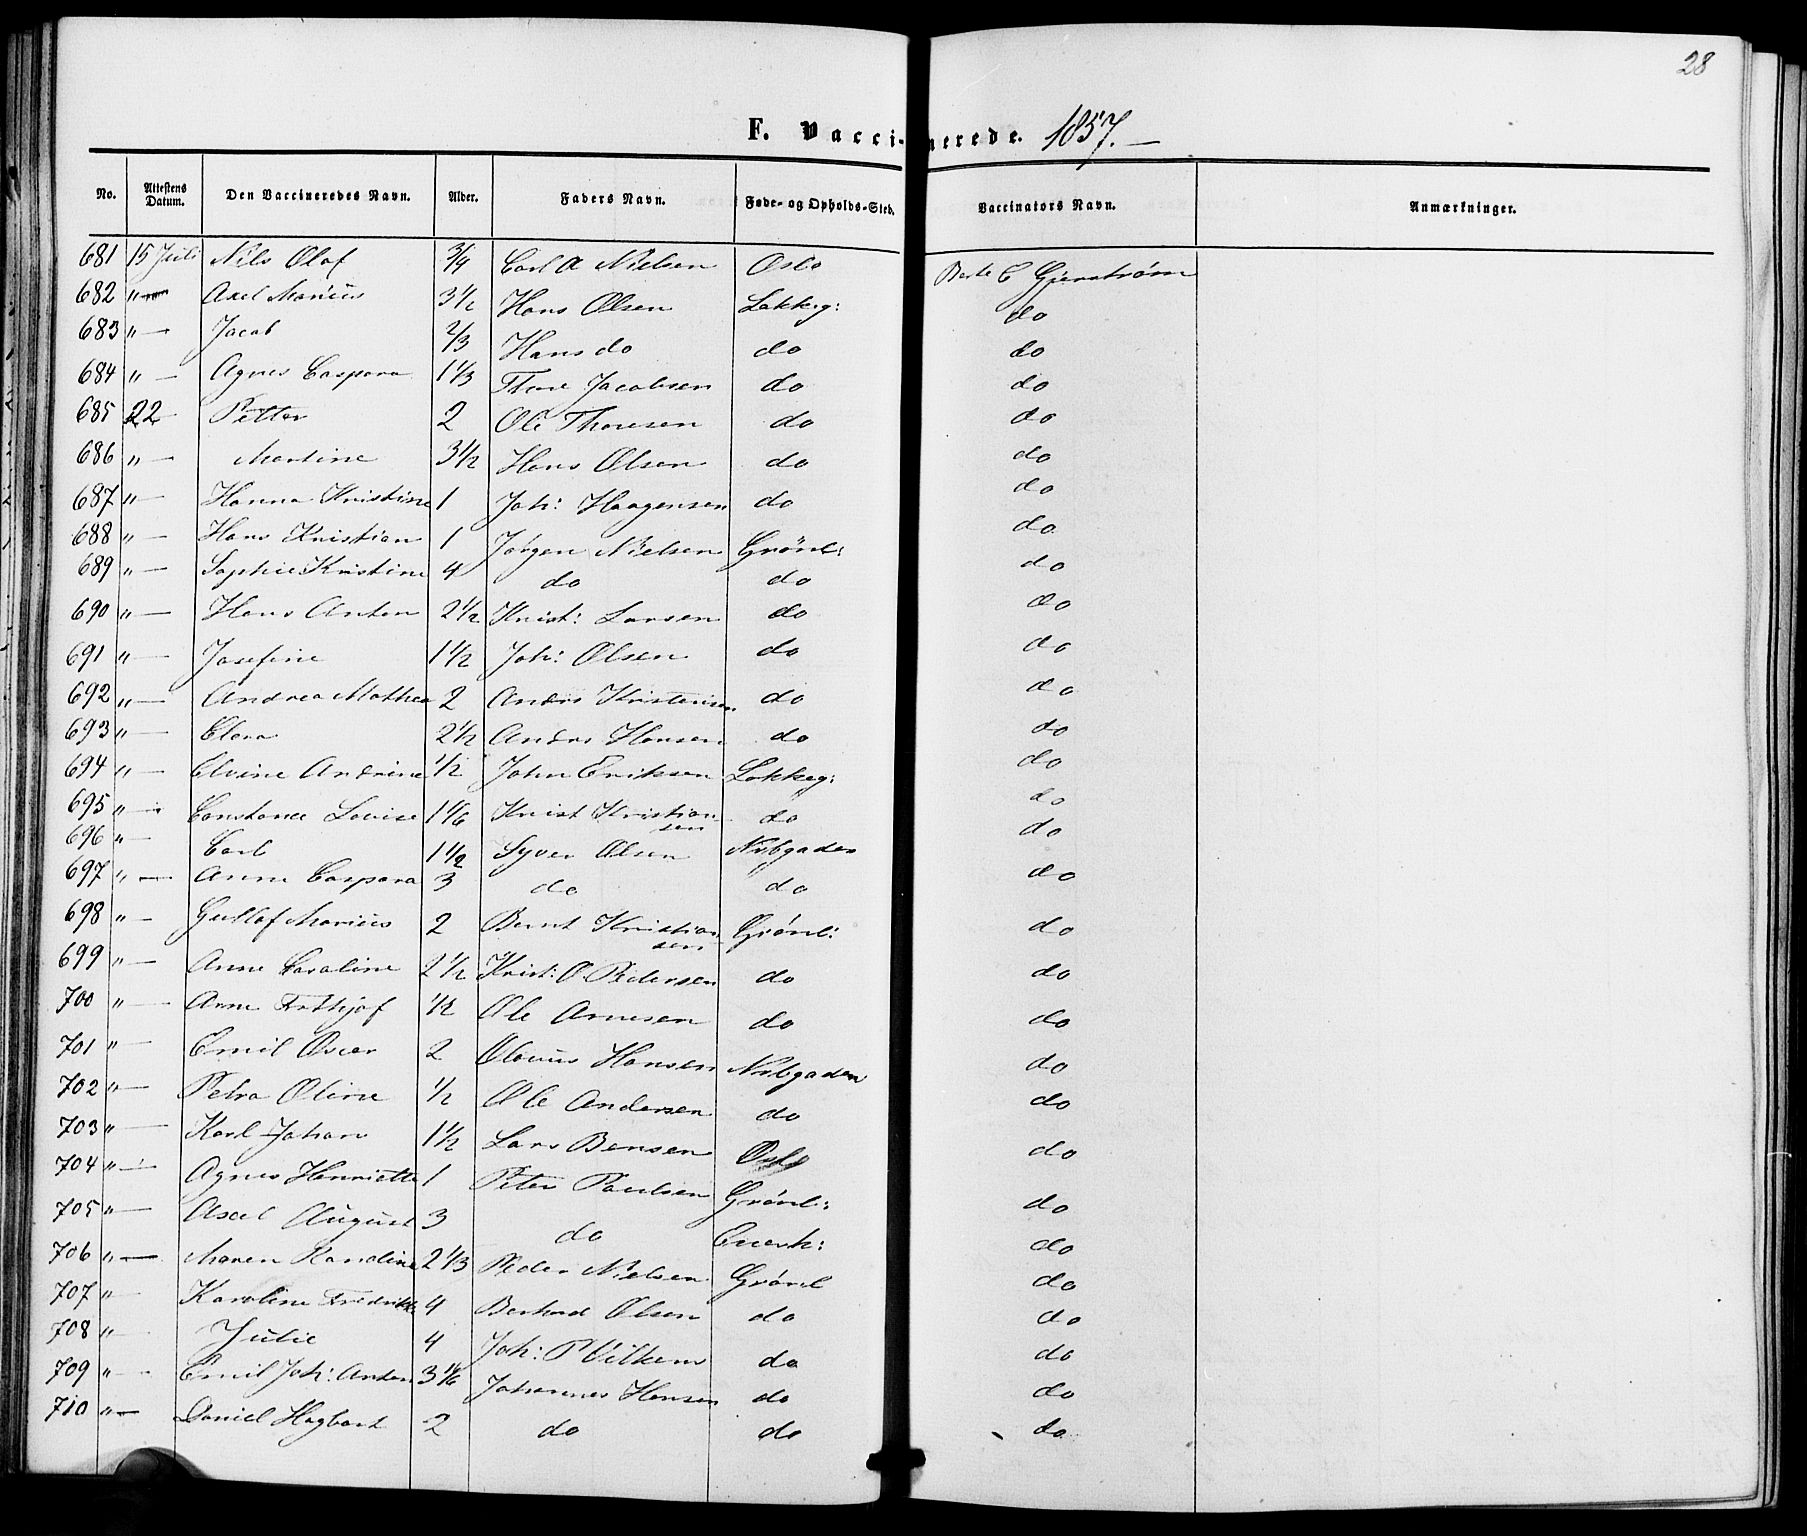 28
F. Vaccinerede. 1857.
No. Attestens Datum. Den Vaccineredes Navn. Alder. Faders Navn. Føde- og Opholds-Sted. Vaccinators Navn. Anmærkninger.
681 15 Juli Nils Olaf 3/4 Carl A Nielsen Oslo C Gjerstrøm
682 " — Axel Marius 3 1/2 Hans Olsen Lakkeg: do
683 " — Jacob 2/3 Hans do do do
684 " — Agnes Caspara 1 1/3 Thore Jacobsen do do
685 22 Petter 2 Ole Thoresen do do
686 " — Martine 3 1/2 Hans Olsen do do
687 " — Hanna Kristine 1 Joh: Haagensen do do
688 " — Hans Kristian 1 Jørgen Nielsen Grönl: do
689 " — Sophie Kristine 4 do do do
690 " — Hans Anton 2 1/2 Krist: Larsen do do
691 " — Josefine 1 1/2 Joh: Olsen do do
692 " — Andrea Mathea 2 Andrs Kristensen do do
693 " — Clara 2 1/2 Andrs Hansen do do
694 " — Elvine Andrine 1/2 John Eriksen Lakkeg: do
695 " — Constance Lovise 1 1/6 Krist Kristiansen do do
696 " — Carl 1 1/2 Syver Olsen Nybgaden do
697 " — Anne Caspara 3 do do do
698 " — Gullof Marius 2 Bernt Kristiansen Grönl: do
699 " — Anne Caroline 2 1/2 Krist: O Pedersen do do
700 " — Arne Frithjof 1/2 Ole Arnesen do do
701 " — Emil Oscar 2 Olavus Hansen Nybgaden do
702 " — Petra Oline 1/2 Ole Andersen do do
703 " — Karl Johan 1 1/2 Lars Bensen Oslo do
704 " — Agnes Henriette 1 Peter Paulsen Grönl: do
705 " — Axel August 3 do Enerh: do
706 " — Maren Randine 2 1/3 Peder Nielsen Grönl do
707 " — Karoline Fredrikke 4 Berhard Olsen do do
708 " — Julie 4 Joh: P Vilkens do do
709 " — Emil Joh: Anton 3 1/6 Johannes Hansen do do
710 " — Daniel Hagbart 2 do do do